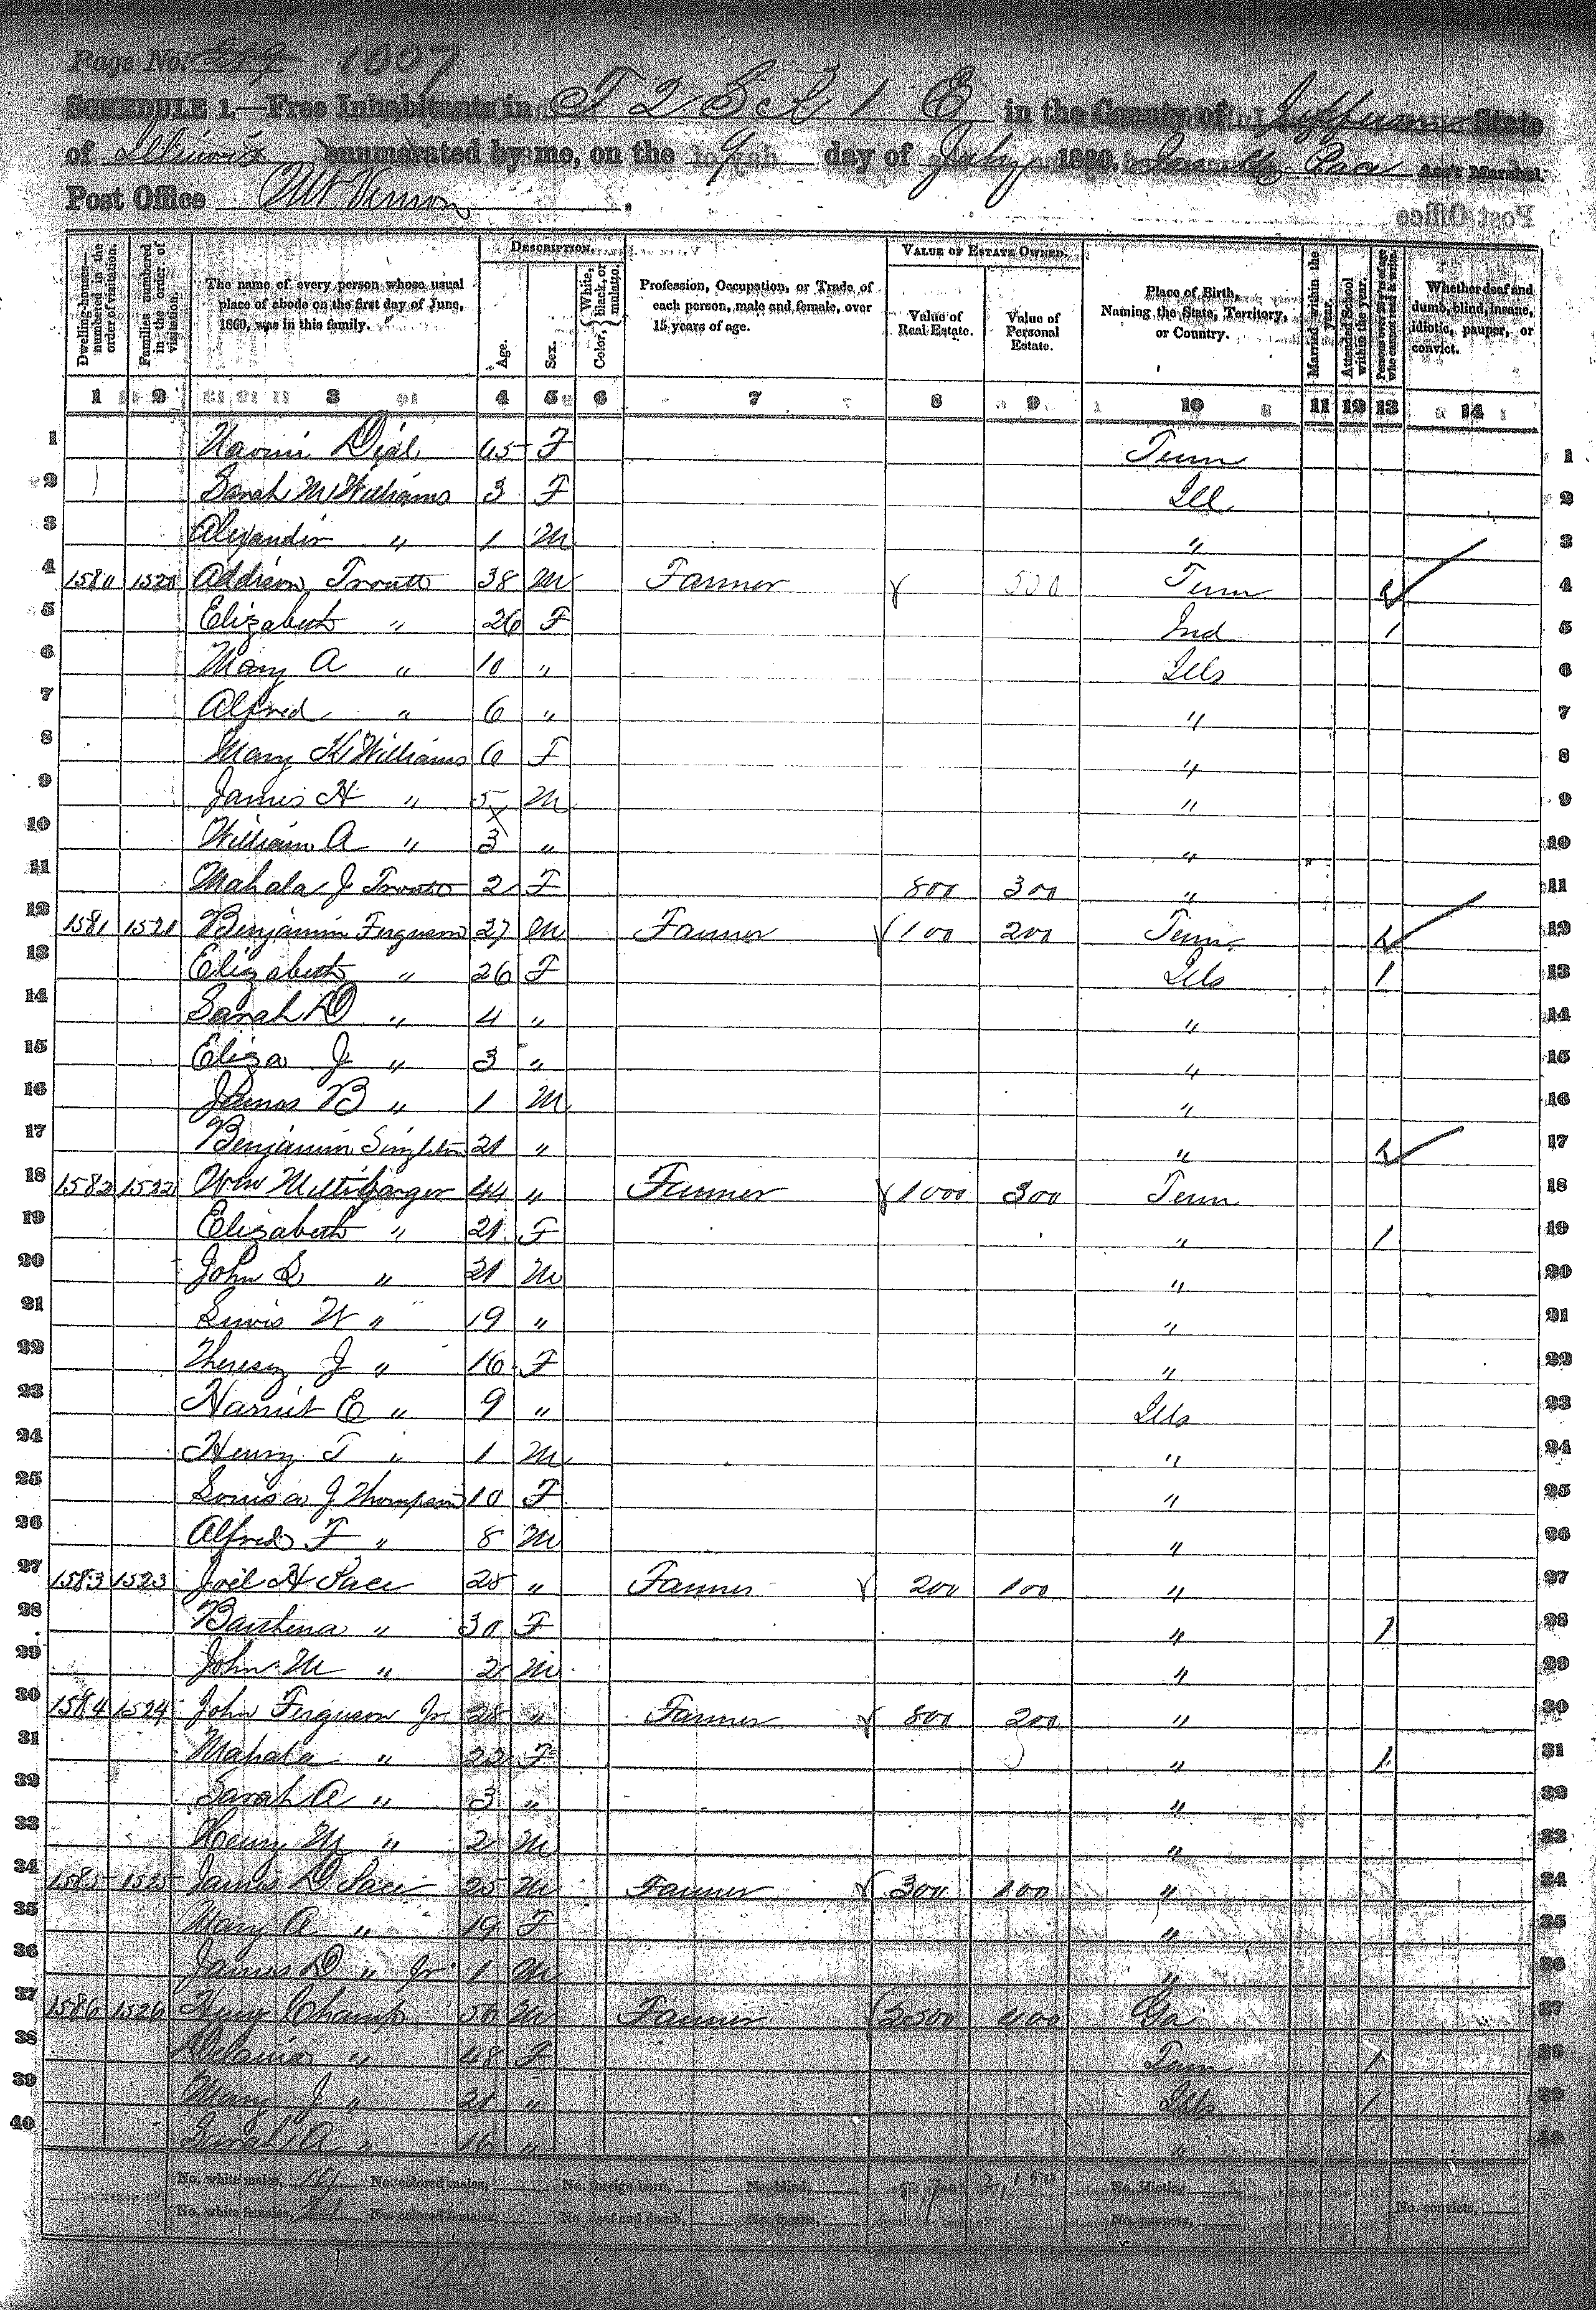 Page No. 219 1007
SCHEDULE 1.—Free Inhabitants in T 2 S R 1 E in the County of Jefferson State
of Illinois enumerated by me, on the 9 day of July 1860. Pace Ass't Marshal.
Post Office Mt Vernon
Dwelling-houses—numbered in the order of visitation.
Families numbered in the order of visitation.
The name of every person whose usual place of abode on the first day of June, 1860, was in this family.
DESCRIPTION.
Age.
Sex.
Color, { White, black, or mulatto.
Profession, Occupation, or Trade of each person, male and female, over 15 years of age.
VALUE OF ESTATE OWNED.
Value of Real Estate.
Value of Personal Estate.
Place of Birth, Naming the State, Territory, or Country.
Married within the year.
Attended School within the year.
Persons over 20 y'rs of age who cannot read & write.
Whether deaf and dumb, blind, insane, idiotic, pauper, or convict.
1 2 3 4 5 6 7 8 9 10 11 12 13 14
1 Naomi Dial 65 F Tenn 1
2 Sarah M Williams 3 F Ill 2
3 Alexander " 1 M " 3
4 1580 1520 Addison Troutt 38 M Farmer 500 Tenn 4
5 Elizabeth " 26 F Ind 1 5
6 Mary A " 10 " Ills 6
7 Alfred " 6 " " 7
8 Mary K Williams 6 F " 8
9 James H " 5 M " 9
10 William A " 3 " " 10
11 Mahala J Troutt 2 F 800 300 " 11
12 1581 1521 Benjamin Ferguson 27 M Farmer 100 200 Tenn 1 12
13 Elizabeth " 26 F Ills 1 13
14 Sarah D " 4 " " 14
15 Eliza J " 3 " " 15
16 James B " 1 M " 16
17 Benjamin Singleton 21 " " 1 17
18 1582 1522 Wm 44 " Farmer 1000 300 Tenn 18
19 Elizabeth " 21 F " 1 19
20 John S " 21 M " 20
21 Lewis W " 19 " " 21
22 Theresy J " 16 F " 22
23 Harriet E " 9 " Ills 23
24 Henry T " 1 M " 24
25 Louisa J Thompson 10 F " 25
26 Alfred F " 8 M " 26
27 1583 1523 Joel H Pace 28 " Farmer 200 100 " 27
28 " 30 F " 1 28
29 John M " 2 M " 29
30 1584 1524 John Ferguson Jr 28 " Farmer 800 200 " 30
31 Mahala " 22 F " 1 31
32 Sarah A " 3 " " 32
33 Henry M " 2 M " 33
34 1585 1525 James D Pace 25 M Farmer 300 100 " 34
35 Mary A " 19 F " 35
36 James D " Jr 1 M " 36
37 1586 1526 Henry Champ 50 M Farmer 2500 400 Ga 37
38 " 48 F Tenn 1 38
39 Mary J " 21 " Ills 1 39
40 Sarah A " 16 " " 40
No. white males, 19 No. colored males, No. foreign born, No. blind, 5,700 2,150 No. idiotic,
No. white females, 21 No. colored females, No. deaf and dumb, No. insane, No. paupers, No. convicts,